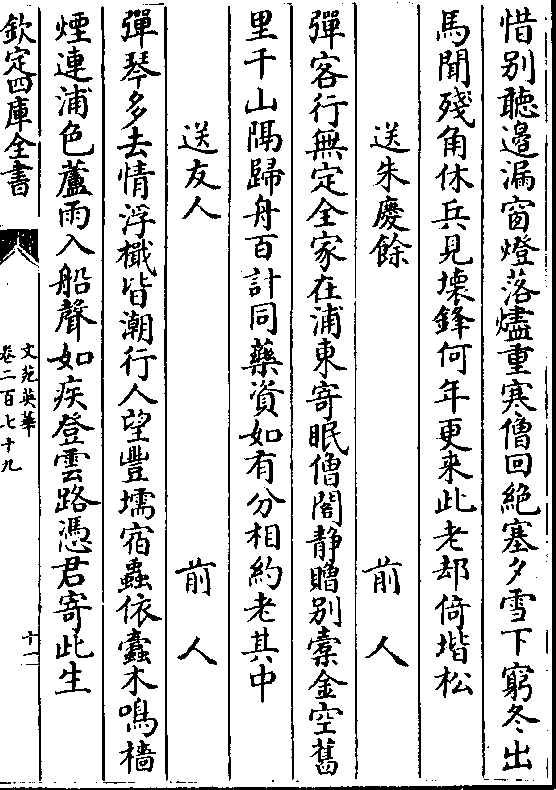 惜别聽邊漏窗燈落燼重寒僧回絶塞夕雪下窮冬出
馬聞殘角休兵見壞鋒何年更来此老却倚堦松
送朱慶餘　前人
彈客行無定全家在浦東寄眠僧閤静贈别槖金空舊
里千山隔歸舟百計同藥資如有分相約老其中
送友人　前人
彈琴多去情浮檝背潮行人望豐壖宿蟲依蠧木鳴檣
煙連浦色蘆雨入船聲如疾登雲路憑君寄此生
欽定四庫全書
文苑英華
卷二百七十九
十一